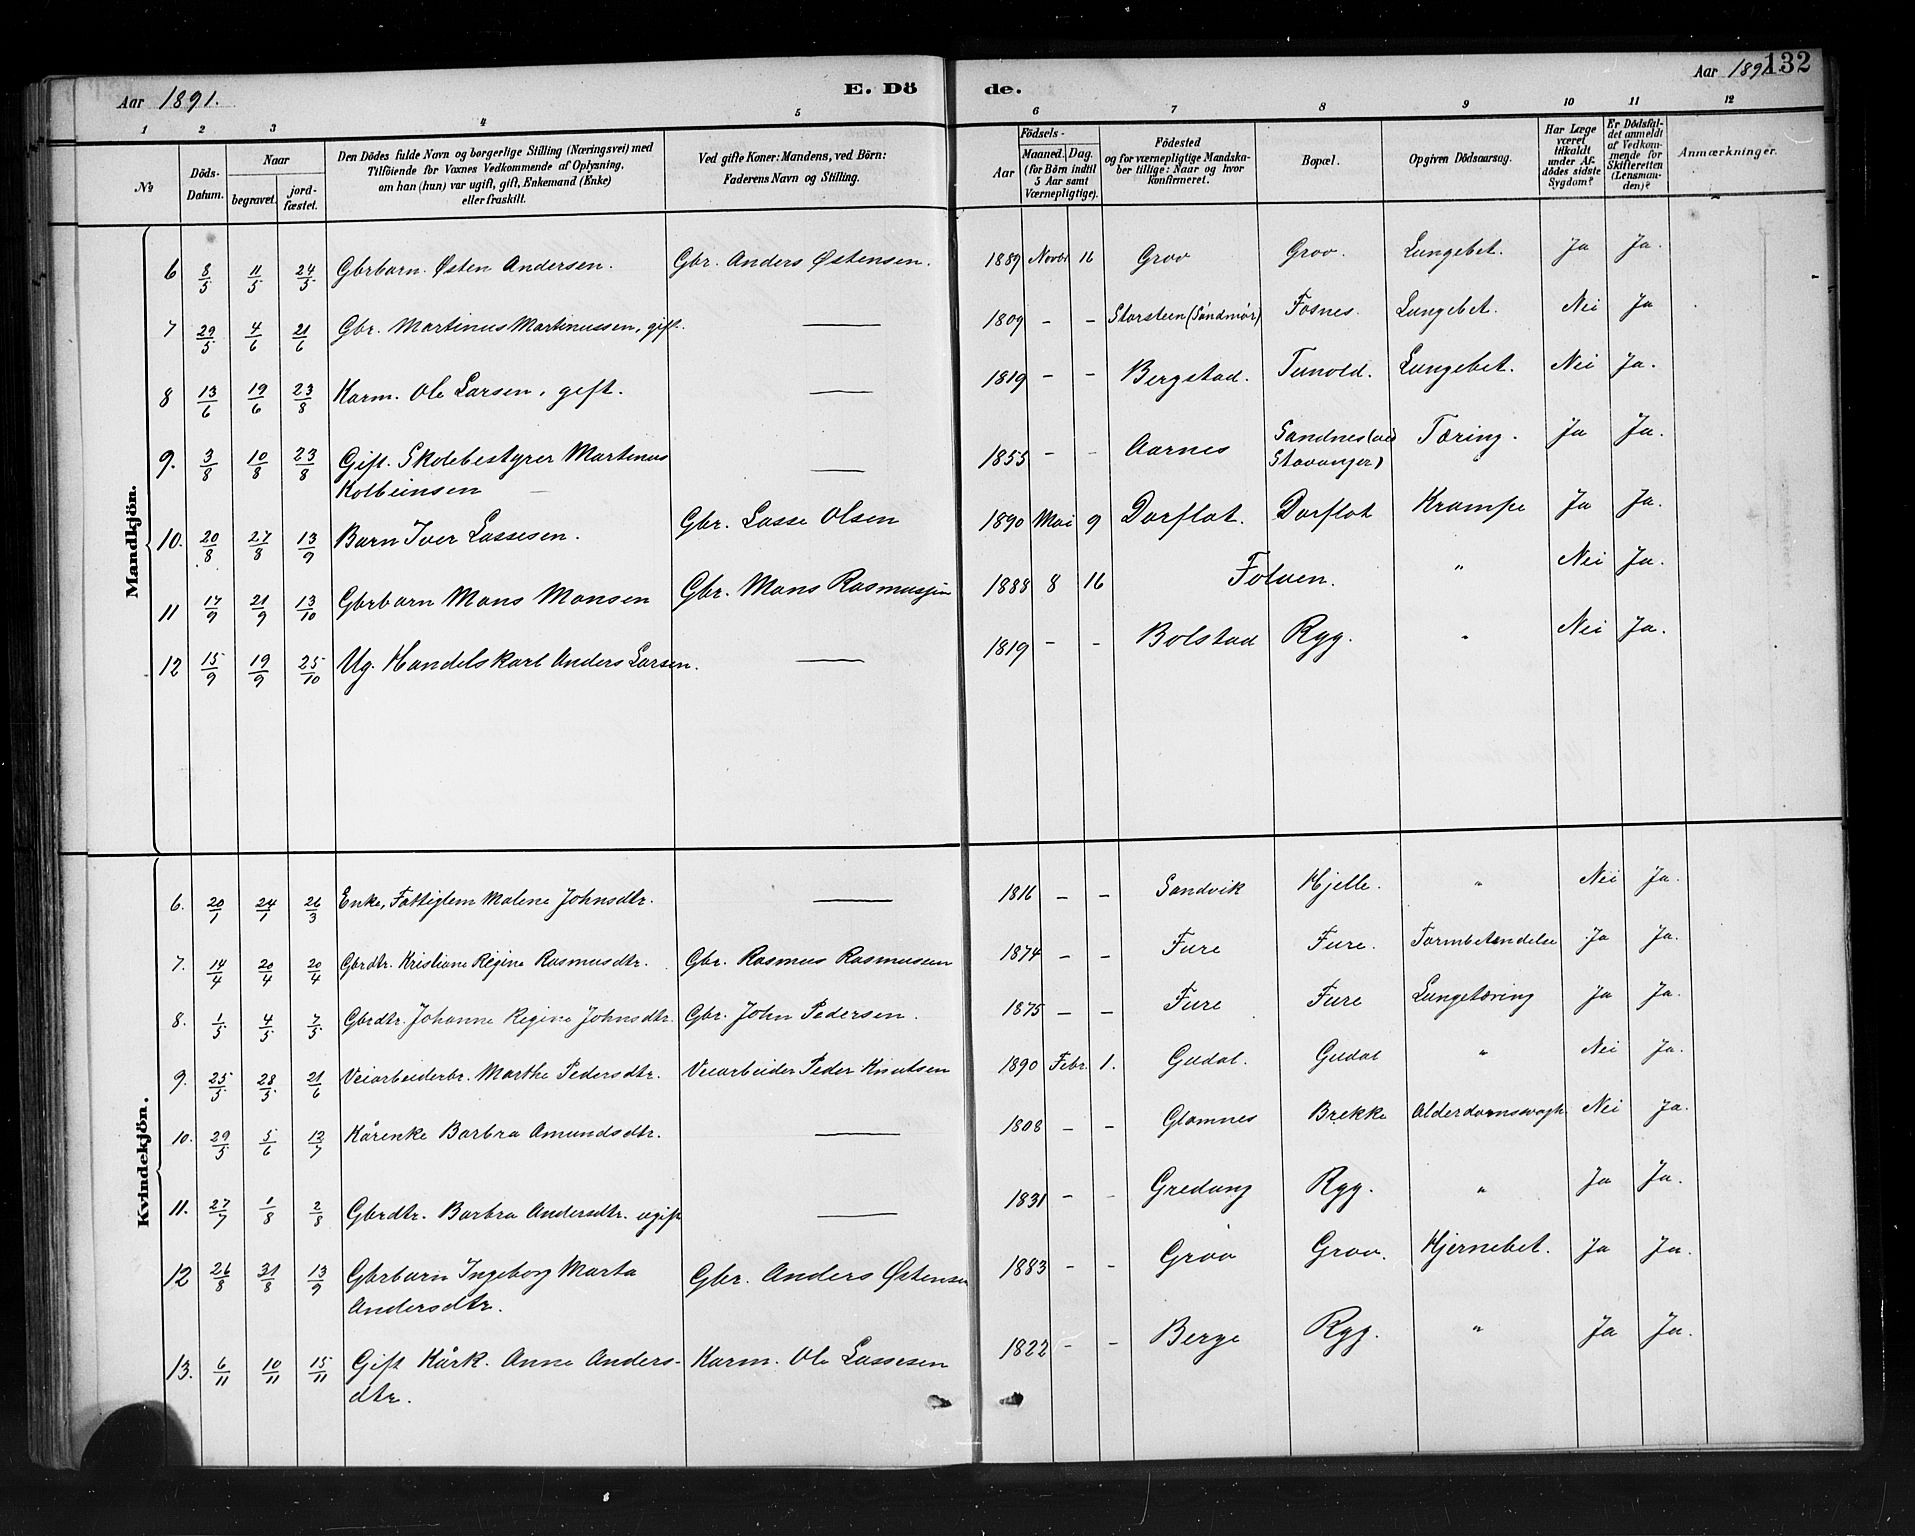 Aar 1891.
E. Dö
de.
Aar 1891.
132
1 2 3 4 5 6 7 8 9 10 11 12
No
Döds-Datum.
Naar
begravet.
jord-fæstet.
Den Dödes fulde Navn og borgerlige Stilling (Næringsvei) med
Tilföiende for Voxnes Vedkommende af Oplysning,
om han (hun) var ugift, gift, Enkemand (Enke)
eller fraskilt.
Ved gifte Koner: Mandens, ved Börn:
Faderens Navn og Stilling.
Födsels-
Aar
Maaned. Dag.
(for Börn indtil
5 Aar samt
Værnepligtige).
Födested
og for værnepligtige Mandska-
ber tillige: Naar og hvor
konfirmeret.
Bopæl.
Opgiven Dödsaarsag.
Har Læge
været
tilkaldt
under Af-
dödes sidste
Sygdom?
Er Dödsfal-
det anmeldt
af Vedkom-
mende for
Skifteretten
(Lensman-
den)?
Anmærkninger.
Mandkjön.
6 8/5 11/5 24/5 Gbrbarn. Østen Andersen. Gbr. Anders Østensen. 1889 Novbr 16 Grov Grov. Lungebet. Ja Ja.
7 29/5 4/6 21/6 Gbr. Martinus Martinussen, gift. — 1809 - - Storsteen (Søndmør) Fosnes. Lungebet. Nei Ja
8 13/6 19/6 23/8 Karm. Ole Larsen, gift. — 1819 - - Bergstad. Tunold. Lungebet. Nei Ja.
9. 3/8 10/8 23/8 Gift. Skolebestyrer Martinus — 1855 - - Aarnes Sandnes (ved Tæring. Ja Ja.
Kolbeinsen Stavanger)
10. 20/8 27/8 13/9 Barn Iver Lassesen. Gbr. Lasse Olsen 1890 Mai 9 Dorflot. Dorflot Krampe Ja Ja.
11 17/9 21/9 13/10 Gbrbarn Mons Monsen Gbr. Mons Rasmussen 1888 8 16 Folven. " Nei Ja.
12 15/9 19/9 25/10 Ug. Handelskarl Anders Larsen. — 1819 - - Bolstad Ryg. " Nei Ja.
Kvindekjön.
6. 20/1 24/1 26/3 Enke, Fattiglem Malene Johnsdtr. — 1816 - - Sandvik Hjelle. " Nei Ja.
7. 14/4 20/4 20/4 Gbrdtr. Kristiane Regine Rasmusdtr. Gbr. Rasmus Rasmussen 1874 - - Fure Fure. Tarmbetændelse Ja Ja.
8. 1/5 4/5 7/5 Gbrdtr. Johanne Regine Johnsdtr. Gbr. John Pedersen. 1875 - - Fure Fure Lungetæring Ja Ja.
9. 25/5 28/5 21/6 Veiarbeiderbr. Marthe Pedersdtr. Veiarbeider Peder Knutsen 1890 Febr. 1. Gudal. Gudal " Nei Ja.
10. 29/5 5/6 12/7 Kårenke Barbra Amundsdtr. — 1808 - - Glomnes Brekke Alderdomssvagh. Nei Ja.
11. 27/7 1/8 2/8 Gbrdtr. Barbra Andersdtr. ugift — 1831 - - Gredung Ryg. " Ja Ja.
12 26/8 31/8 13/9 Gbrbarn Ingeborg Marta Gbr. Anders Østensen 1883 - - Grov Grov. Hjernebet. Ja Ja.
Andersdtr.
13. 6/11 10/11 15/11 Gift Kårk. Anne Anders- Karm. Ole Lassesen 1822 - - Berge Ryg. " Ja Ja.
dtr.